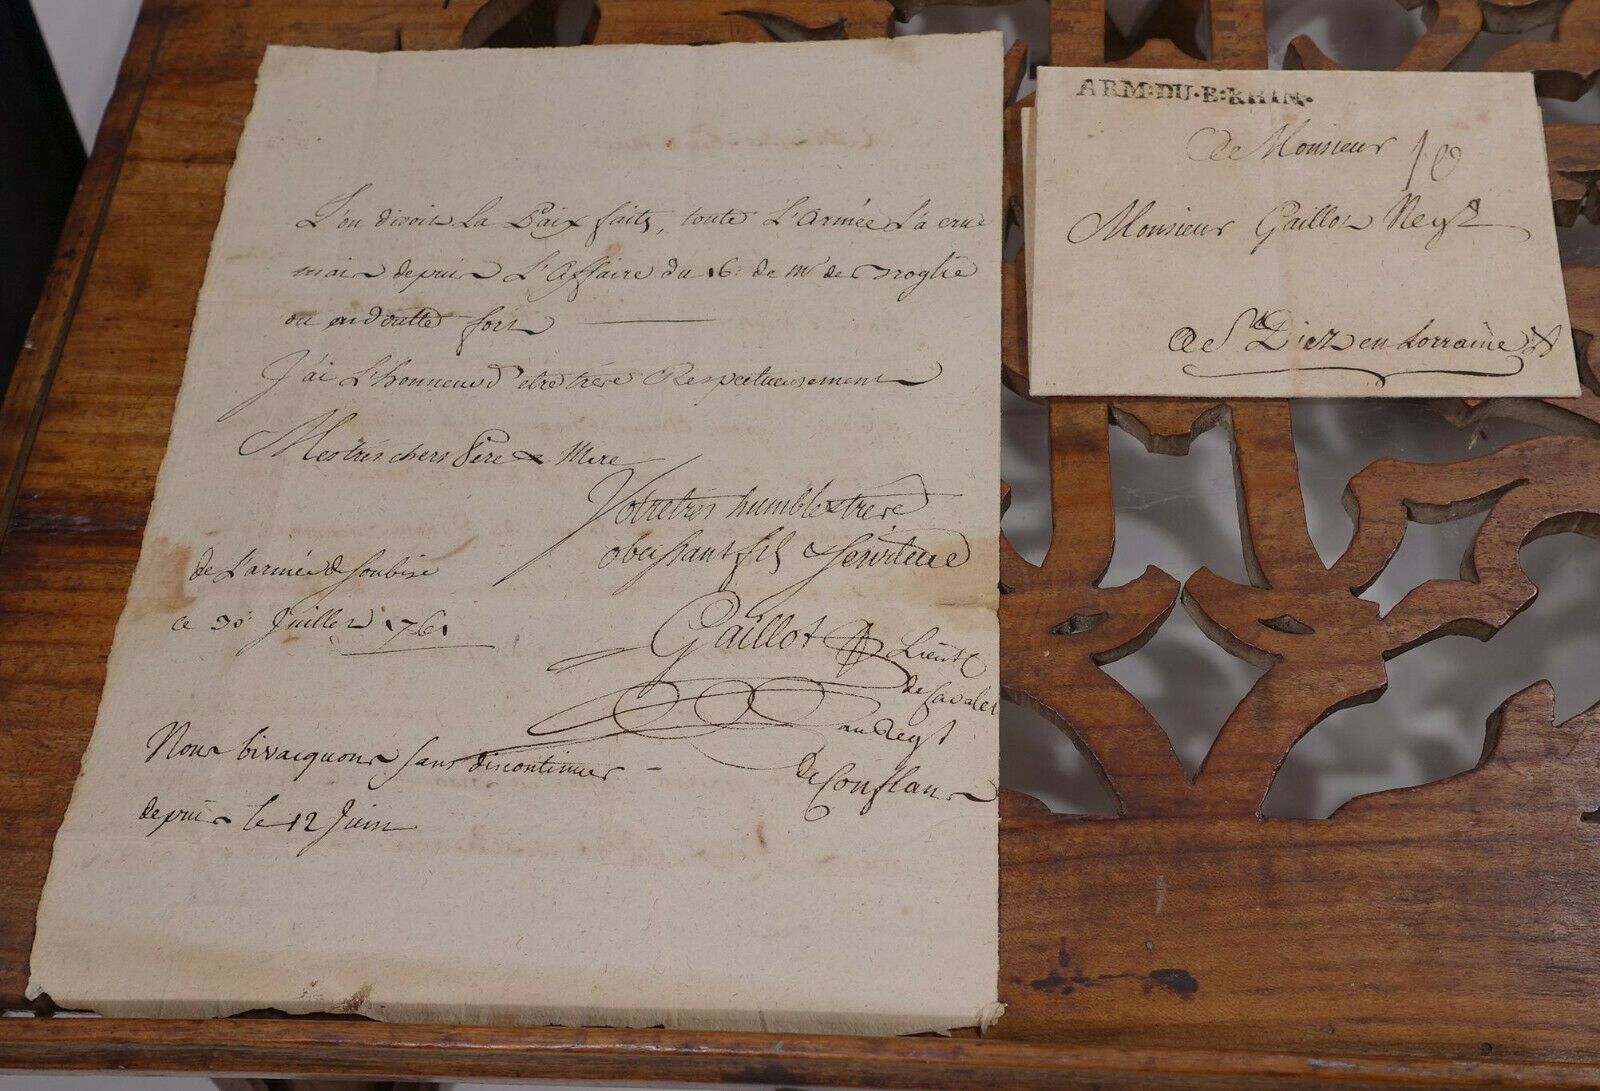 L'on disoit La Paix faite, toute L'Armée L'a crue
mais depuis L'Affaire du 16: de Mr de Broglie
on en doutte fort
J'ai L'honneur d'etre tres Respectueusement
Mes tres chers Pere & Mere
Votre tres humble & tres
obeissant fils & Serviteur
de L'armée de Soubise
ce 30: Juillet 1761
Gaillot Lieut
de Cavaler
au Regt
de Conflans
Nous bivacquons sans discontinuer
depuis le 12 Juin
ARM:DU·B:RHIN·
A Monsieur
10
Monsieur Gaillot
A St Diez en Lorraine